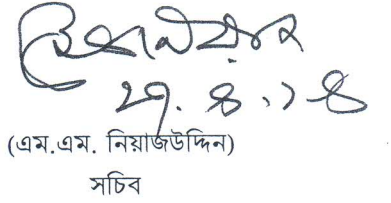 ২৭.৪.১৪
(এম.এম. নিয়াজউদ্দিন)
সচিব